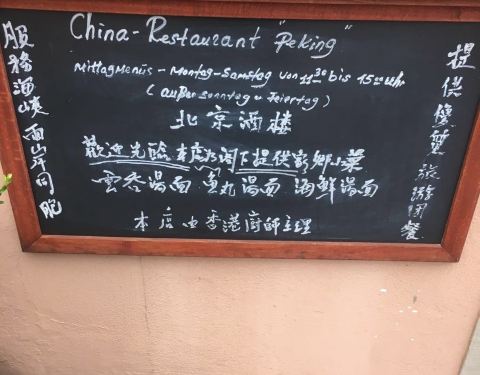 China-Restaurant "Peking"
Mittagmenüs - Montag-Samstag von 11³⁰ bis 15⁰⁰ uhr
(außer Sonntag u Feiertag)
北京酒楼
歡迎光臨 本店为阁下提供家鄉小菜
雲吞湯面 魚丸湯面 海鮮湯面
本店由香港廚師主理
服務海峽両岸同胞
提供優質旅游团餐